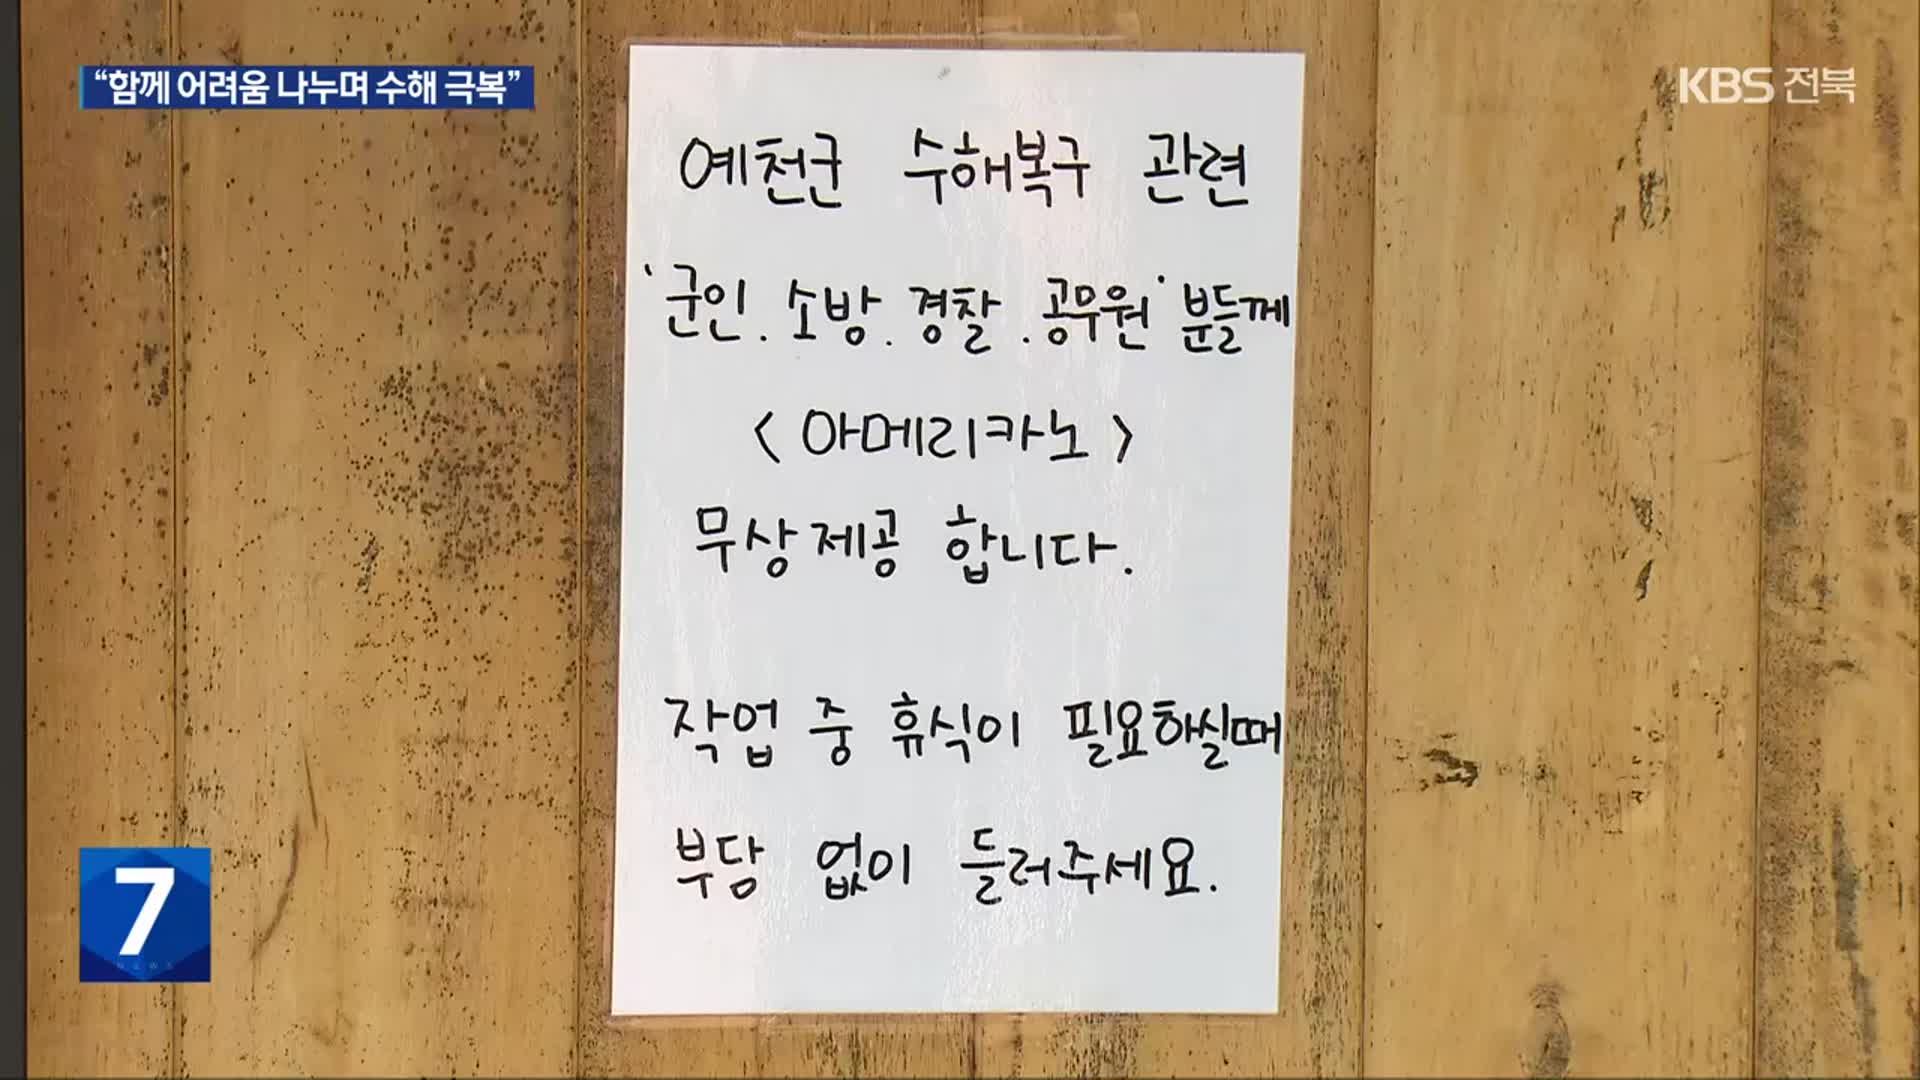 “함께 어려움 나누며 수해 극복”
KBS 전북
예천군 수해복구 관련
'군인. 소방. 경찰. 공무원' 분들께
<아메리카노>
무상제공 합니다.
작업 중 휴식이 필요하실때
부담 없이 들러주세요.
7
NEWS